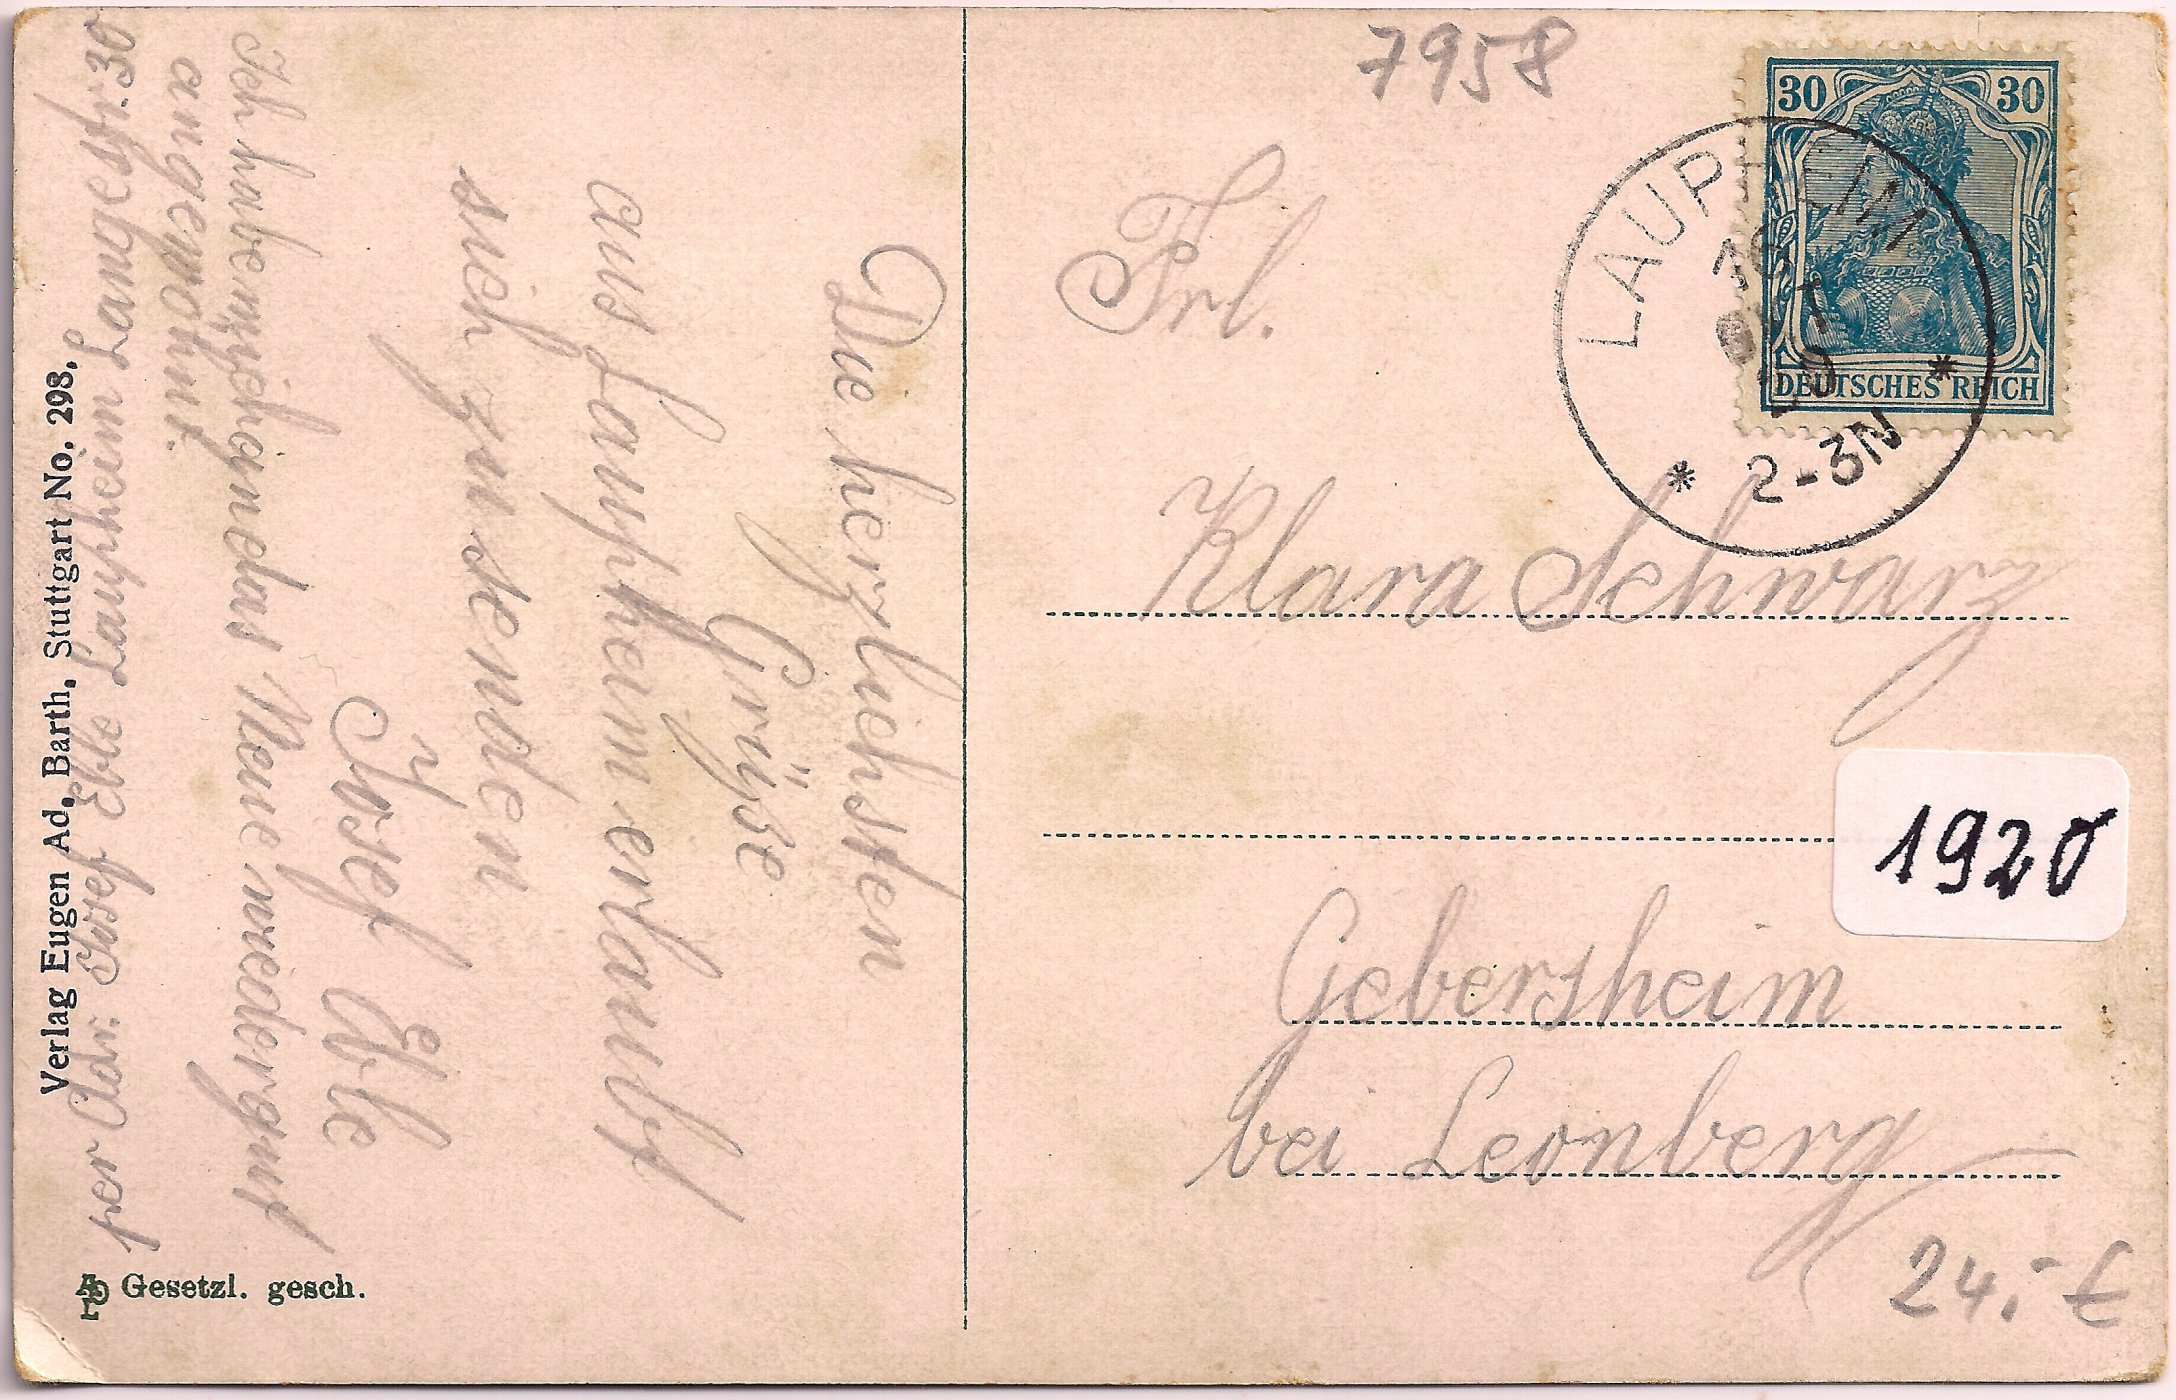 Die herzlichsten
Grüße
aus Laupheim erlaubt
sich zu senden
Josef Eble
Ich habe mich an das Neue wieder gut
angewohnt.
per Adr. Josef Eble Laupheim Langestr. 30
Verlag Eugen Ad. Barth, Stuttgart No. 298.
Gesetzl. gesch.
7958
30 30
DEUTSCHES REICH
LAUPHEIM
2-3N
Frl.
Klara Schwarz
1920
Gebersheim
bei Leonberg
24.- €